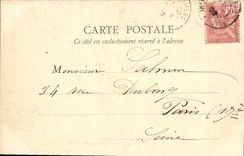 CARTE POSTALE
Ce côté est exclusivement réservé à l'adresse
Monsieur Salmon
34 Rue Dulong
Paris
Seine